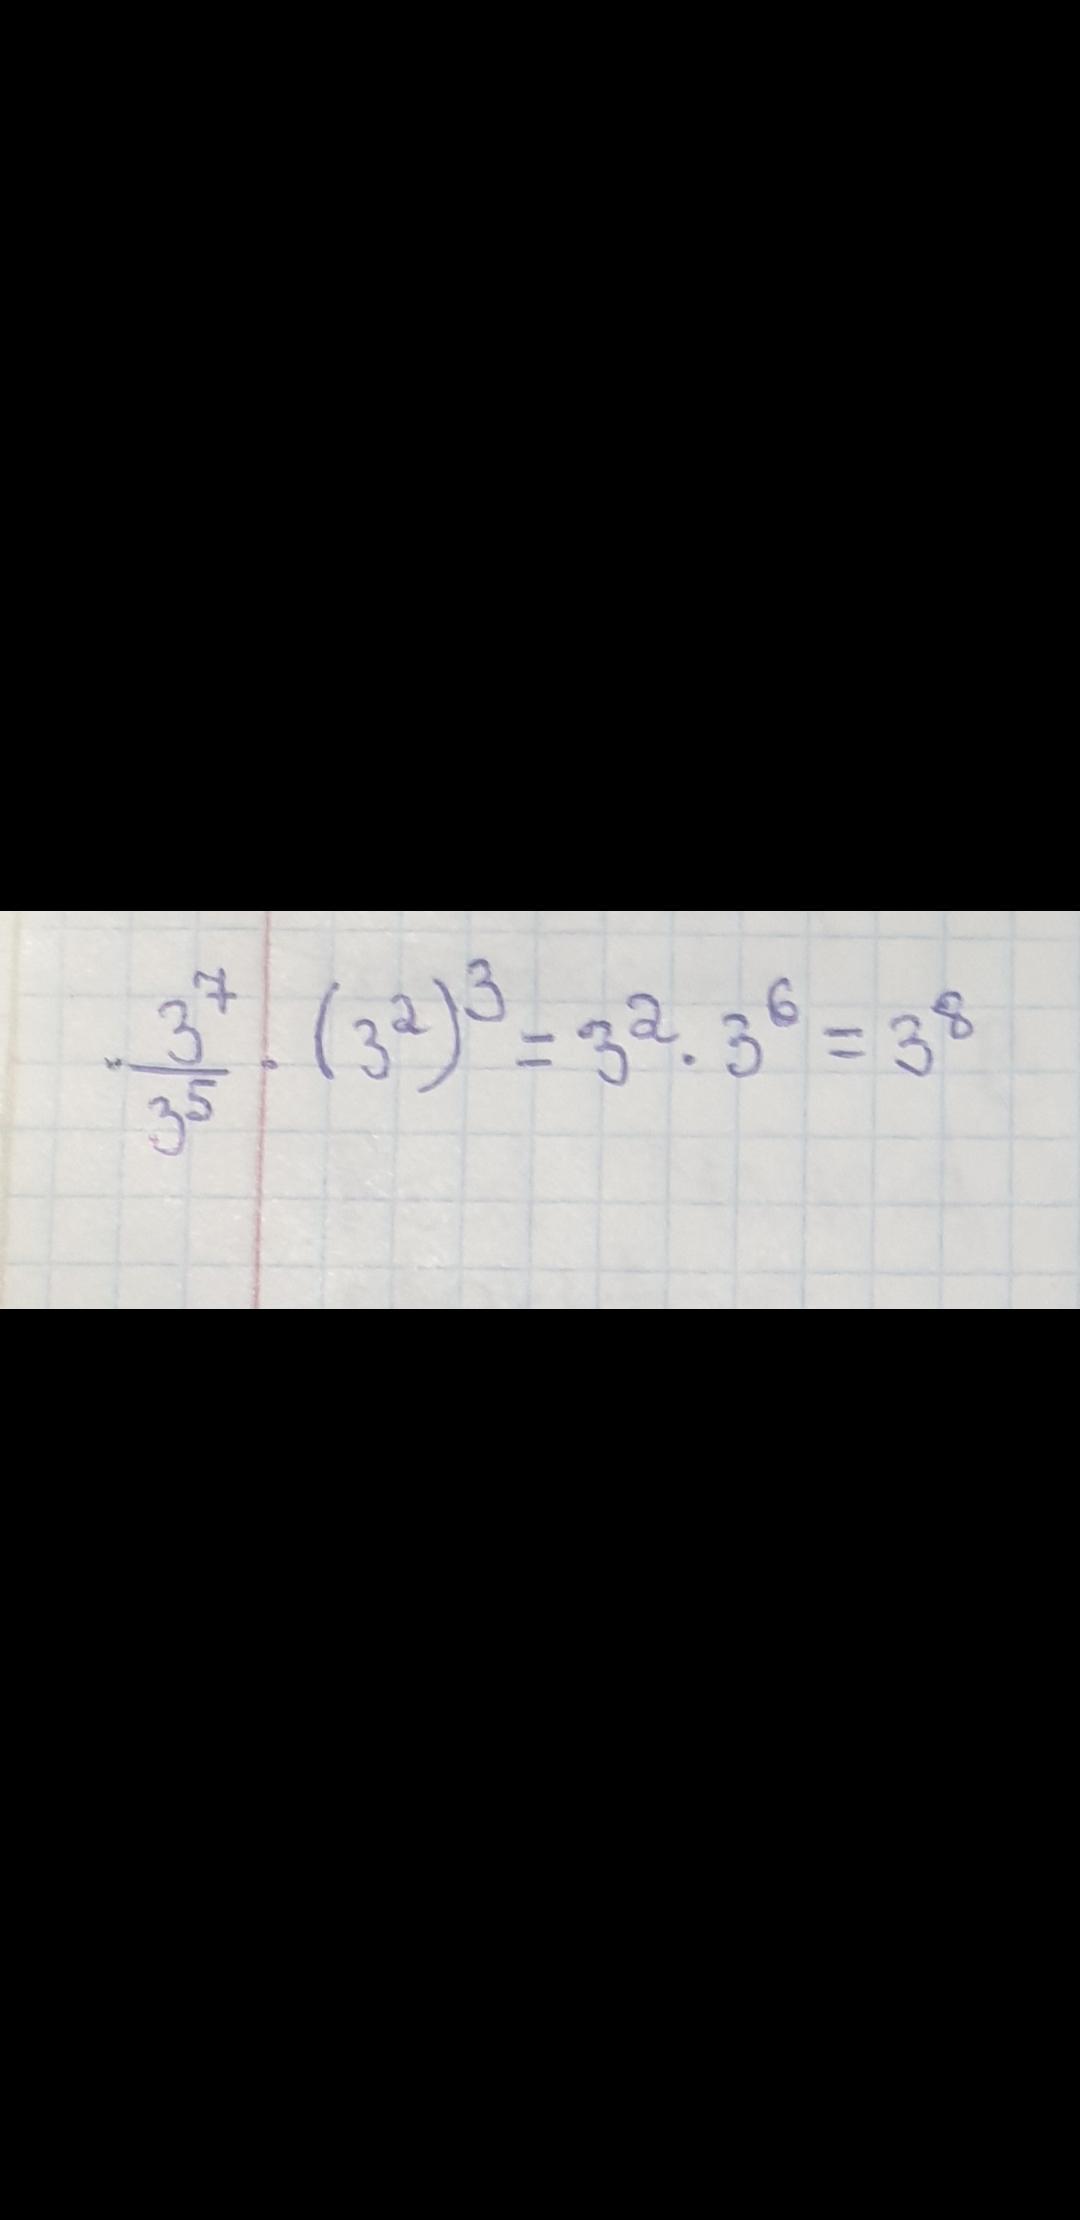 3⁷/3⁵ · (3²)³ = 3² · 3⁶ = 3⁸